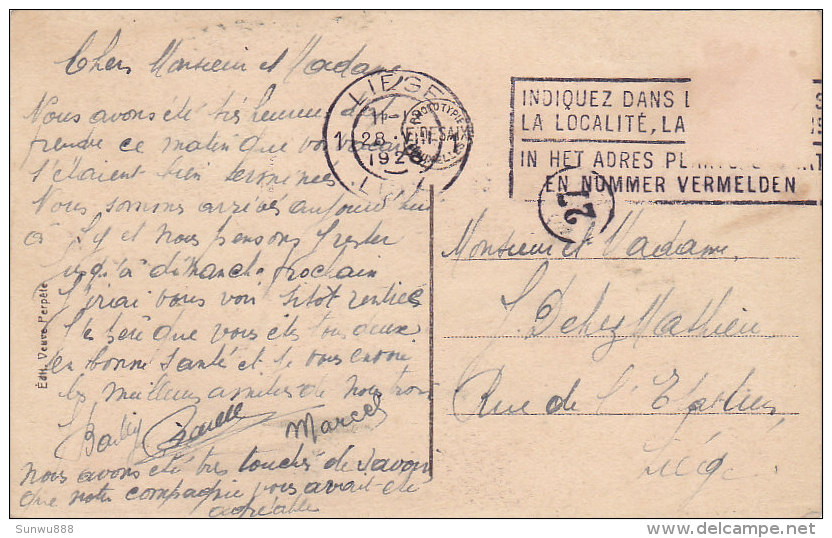 Chers Monsieur et Madame
Nous avons été très heureux d'
prendre ce matin que vos vacances
s'étaient bien terminées
Nous sommes arrivés aujourd'hui
à Sy et nous pensons y rester
jusqu'à dimanche prochain
J'irai vous voir sitôt rentrés
J'espère que vous êtes tous deux
en bonne santé et je vous envoie
les meilleurs amitiés de nous trois
Marcel
Nous avons été très touchés de savoir
que notre compagnie vous avait été
agréable
Edit. Veuve Perpète
LIEGE
11-12
28 VII
1928
E. DESAIX
INDIQUEZ DANS L
LA LOCALITÉ, LA
IN HET ADRES
EN NUMMER VERMELDEN
27
Monsieur et Madame
J. Dehez Mathieu
Rue de l'
Liége
Sunwu888
delcampe.net